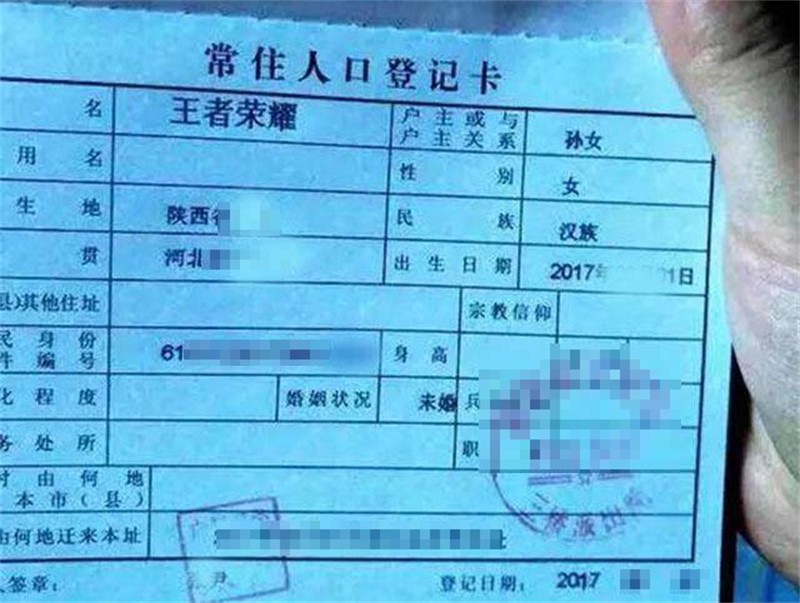 常住人口登记卡
名 王者荣耀 户主或与户主关系 孙女
用名 性别 女
生地 陕西 民族 汉族
贯 河北 出生日期 2017年 01日
县)其他住址 宗教信仰
民身份
件编号 61 身高
化程度 婚姻状况 未婚 兵
务处所 职
时由何地
本市(县)
由何地迁来本址 址
人签章: 登记日期: 2017